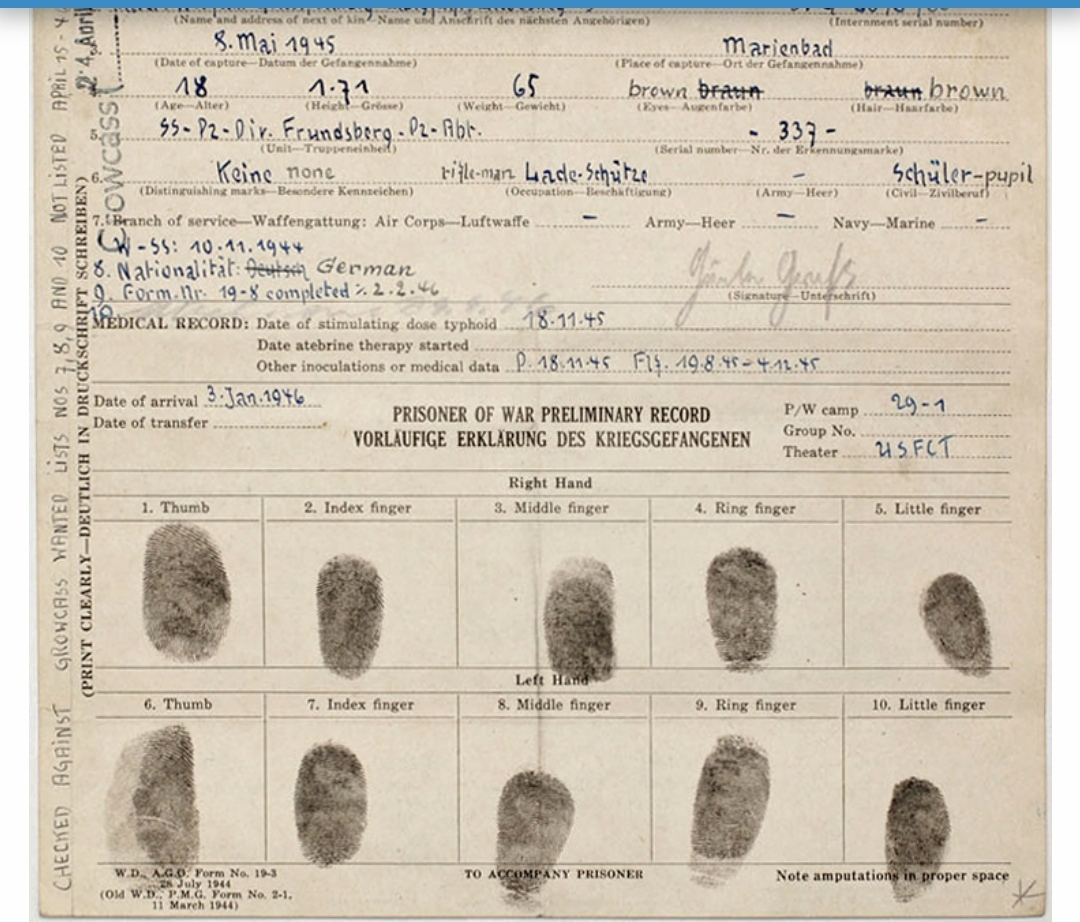 (Name and address of next of kin—Name und Anschrift des nächsten Angehörigen) (Internment serial number)
8. Mai 1945 Marienbad
(Date of capture—Datum der Gefangennahme) (Place of capture—Ort der Gefangennahme)
18 1.71 65 brown braun braun brown
(Age—Alter) (Height—Grösse) (Weight—Gewicht) (Eyes—Augenfarbe) (Hair—Haarfarbe)
5. SS-Pz-Div. Frundsberg-Pz-Abt. - 337 -
(Unit—Truppeneinheit) (Serial number—Nr. der Erkennungsmarke)
6. Keine none rifle-man Lade-Schütze - Schüler-pupil
(Distinguishing marks—Besondere Kennzeichen) (Occupation—Beschäftigung) (Army—Heer) (Civil—Zivilberuf)
7. Branch of service—Waffengattung: Air Corps—Luftwaffe - Army—Heer - Navy—Marine -
W-SS: 10.11.1944
8. Nationalität: Deutsch German
9. Form.Nr. 19-8 completed 2.2.46
(Signature—Unterschrift)
10.
MEDICAL RECORD: Date of stimulating dose typhoid 18.11.45
Date atebrine therapy started
Other inoculations or medical data P. 18.11.45 Flf. 19.8.45-4.12.45
Date of arrival 3.Jan.1946
Date of transfer
PRISONER OF WAR PRELIMINARY RECORD
VORLÄUFIGE ERKLÄRUNG DES KRIEGSGEFANGENEN
P/W camp 29-1
Group No.
Theater USFCT
Right Hand
1. Thumb 2. Index finger 3. Middle finger 4. Ring finger 5. Little finger
Left Hand
6. Thumb 7. Index finger 8. Middle finger 9. Ring finger 10. Little finger
W.D., A.G.O. Form No. 19-3
26 July 1944
(Old W.D., P.M.G. Form No. 2-1,
11 March 1944)
TO ACCOMPANY PRISONER
Note amputations in proper space
(PRINT CLEARLY—DEUTLICH IN DRUCKSCHRIFT SCHREIBEN)
CHECKED AGAINST GROWCASS WANTED LISTS NOS 7, 8, 9 AND 10 NOT LISTED APRIL 15 - 4